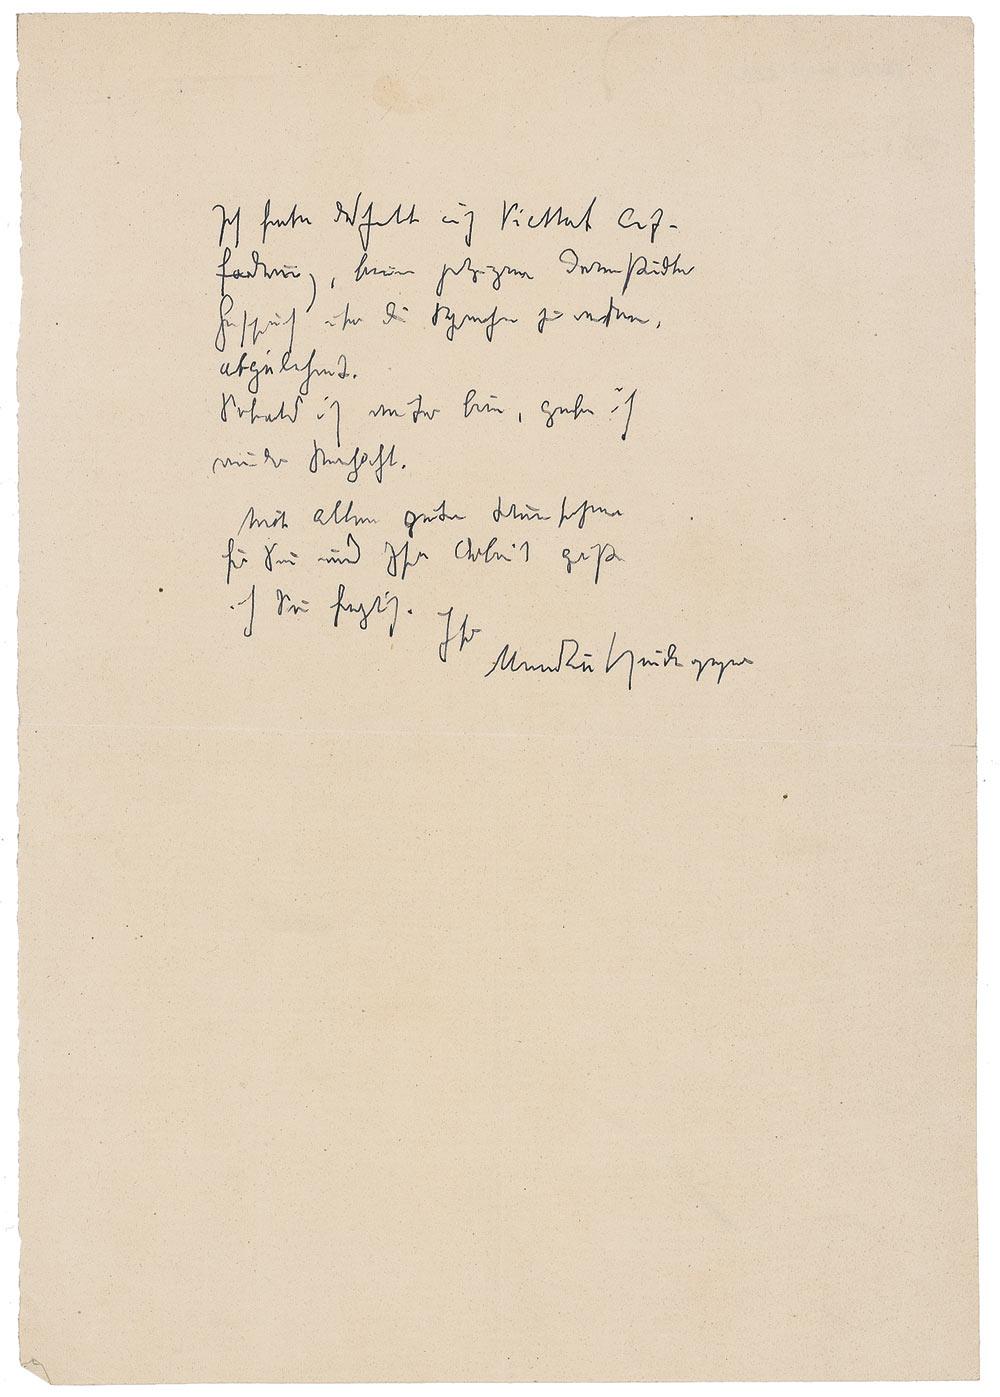 Ich habe deshalb auch Viettas Auf-
forderung, beim jetzigen Darmstädter
Gespräch über die Sprache zu reden,
abgelehnt.
Sobald ich weiter bin, gebe ich
wieder Nachricht.
Mit allen guten Wünschen
für Sie und Ihre Arbeit grüße
ich Sie herzlich.
Ihr
Martin Heidegger